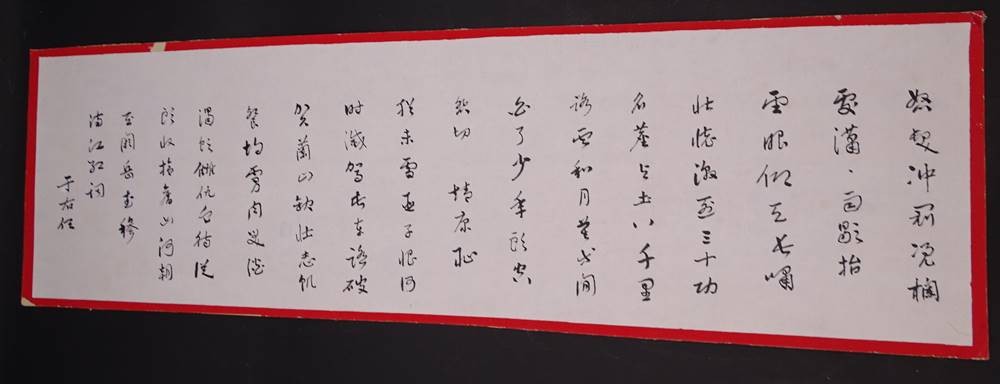 怒髮冲冠凭欄
處瀟、雨歇抬
望眼仰天長嘯
壯懷激烈三十功
名塵與土八千里
路雲和月莫等閒
白了少年頭空
悲切 靖康恥
猶未雪臣子恨何
時滅駕長車踏破
賀蘭山缺壯志飢
餐胡虜肉笑談
渴飲匈奴血待從
頭收拾舊山河朝
天闕岳武穆
滿江紅詞
于右任